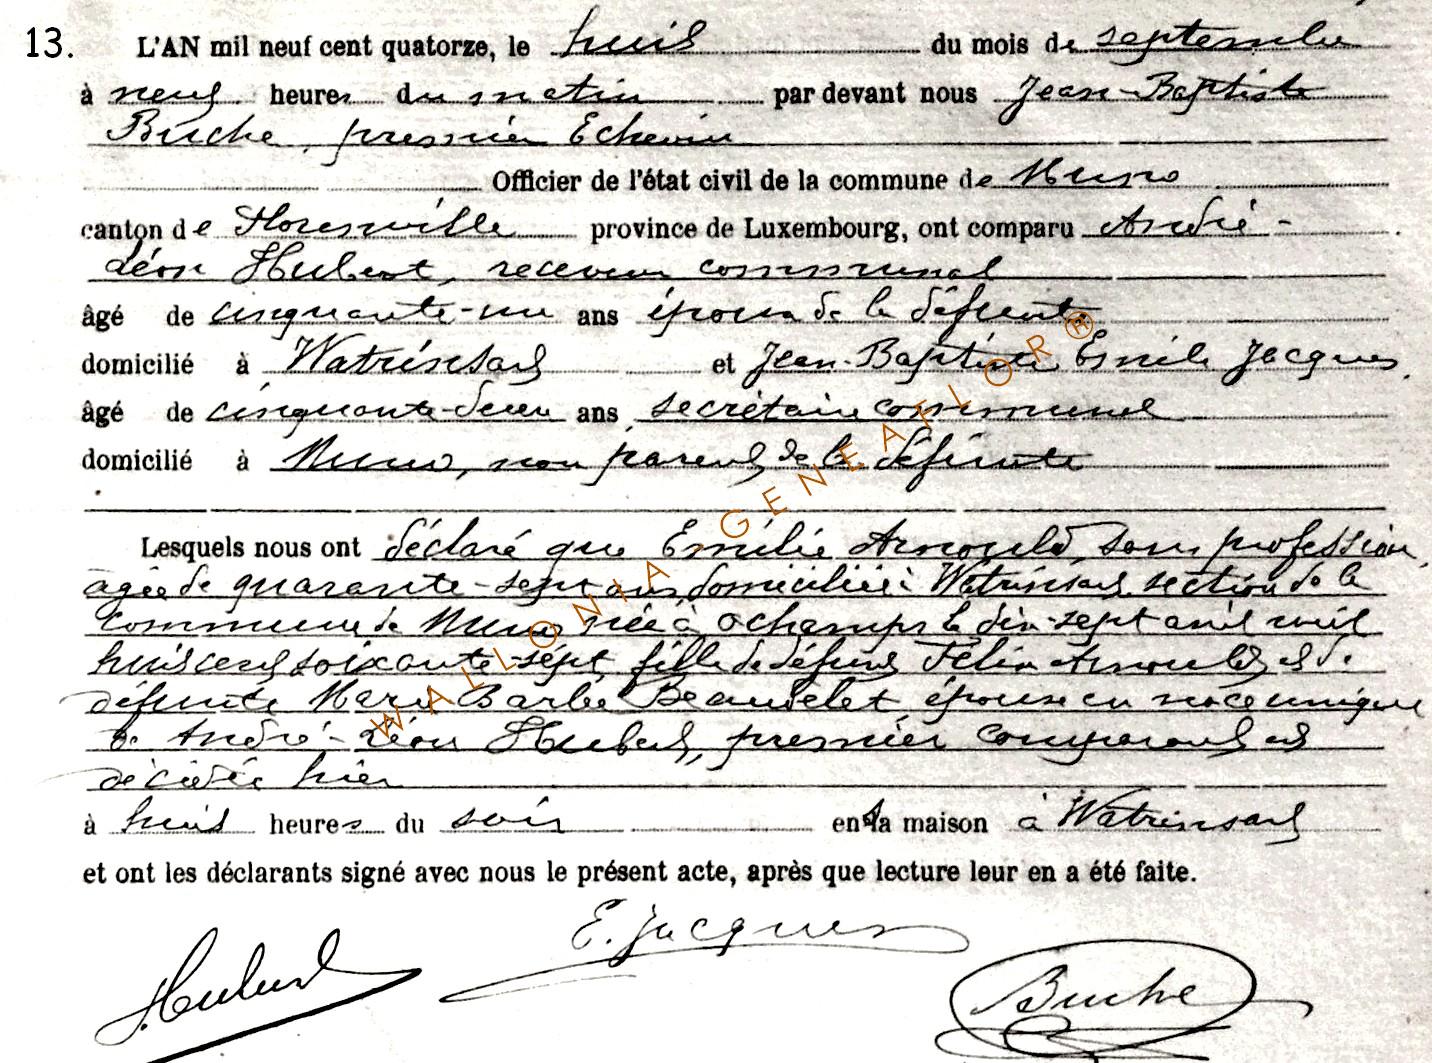 13. L'AN mil neuf cent quatorze, le huit du mois de septembre
à neuf heures du matin par devant nous Jean-Baptiste
Buche, premier Echevin
Officier de l'état civil de la commune de Muno
canton de Florenville province de Luxembourg, ont comparu André-
Léon Hubert, receveur communal
âgé de cinquante-un ans époux de la défunte
domicilié à Watrinsart et Jean-Baptiste Emile Jacques,
âgé de cinquante-deux ans secrétaire communal
domicilié à Muno, non parent de la défunte
Lesquels nous ont déclaré que Emélie Arnould, sans profession,
âgée de quarante-sept ans domiciliée à Watrinsart section de la
commune de Muno née à Ochamps le dix-sept avril mil
huit cent soixante-sept, fille de défunt Félix Arnould et de
défunte Marie Barbe Beaudelet épouse en noce unique
de André-Léon Hubert, premier comparant est
décédée hier
à huit heures du soir en sa maison à Watrinsart
et ont les déclarants signé avec nous le présent acte, après que lecture leur en a été faite.
Hubert E. Jacques Buche
WALLONIA GENEAFLOR®